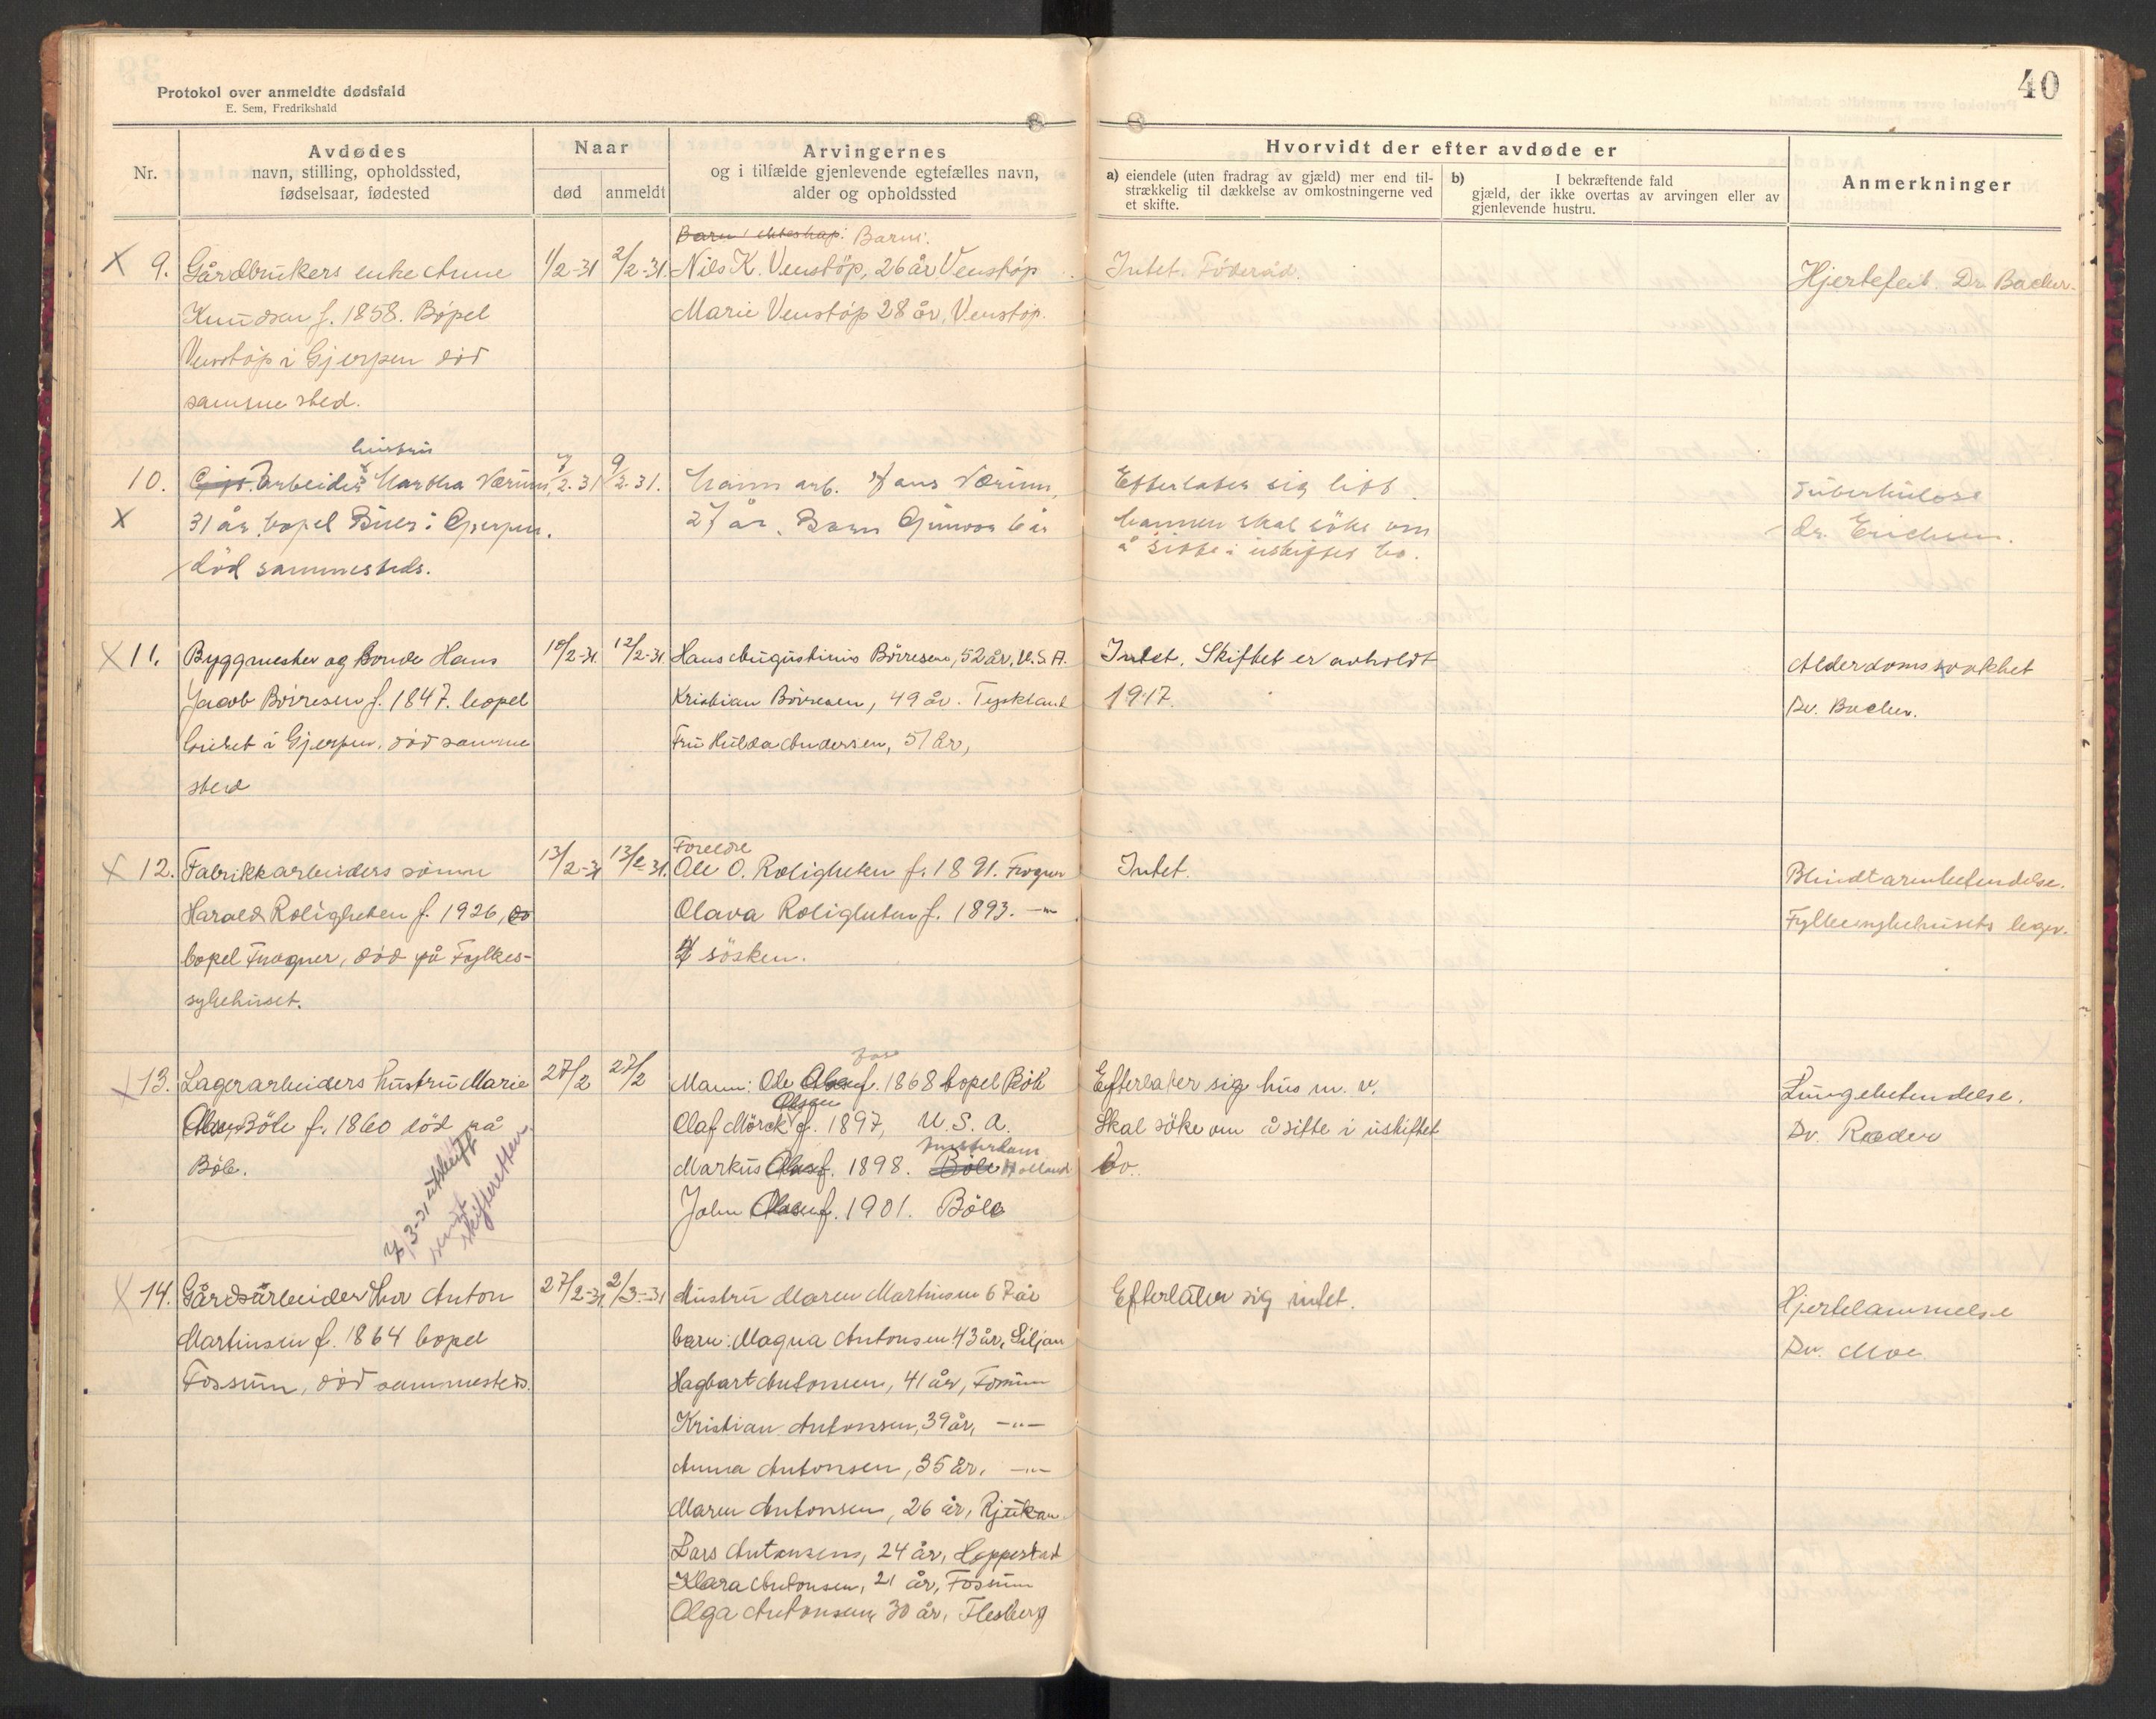 40
Protokol over anmeldte dødsfald
E. Sem, Fredrikshald
Nr.
Avdødes
navn, stilling, opholdssted,
fødselsaar, fødested
Naar
død
anmeldt
Arvingernes
og i tilfælde gjenlevende egtefælles navn,
alder og opholdssted
Hvorvidt der efter avdøde er
a) eiendele (uten fradrag av gjæld) mer end til-
strækkelig til dækkelse av omkostningerne ved
et skifte.
b) I bekræftende fald
gjæld, der ikke overtas av arvingen eller av
gjenlevende hustru.
Anmerkninger
Barn i ekteskap: Barn:
X 9. Gårdbrukers enke Anne 1/2-31 2/2-31. Nils K. Venstöp, 26 år Venstöp Intet. Föderåd. Hjertefeil. Dr. Backer.
Knudsen f. 1858. Bopel Marie Venstöp 28 år, Venstöp.
Venstöp i Gjerpen död
samme sted.
hustru
10. arbeider Martha Nærum, 7/2-31 9/2-31. Mann arb. Hans Nærum, Efterlater sig litt. Tuberkulose
X 31 år. bopel Buer i Gjerpen. 27 år. Barn Gunvor 6 år Mannen skal söke om Dr. Erichsen.
död sammesteds. å sitte i uskiftet bo.
X 11. Byggmester og bonde Hans 10/2-31. 12/2-31 Hans Augustinus Börresen, 52 år, U.S.A. Intet. Skiftet er avholdt Alderdomssvakhet
Jacob Börresen f. 1847. bopel Kristian Börresen, 49 år. Tyskland 1917. Dr. Backer.
i Gjerpen, död samme Fru Hulda Andersen, 51 år,
sted
Foreldre
X 12. Fabrikkarbeiders sönn 13/2-31 13/2-31. Ole O. Roligheten f. 1891. Frogner Intet. Blindtarmbetendelse.
Harald Roligheten f. 1926, Olava Roligheten f. 1893. -"- Fylkessykehusets leger.
bopel Frogner, död på Fylkes- 4 sösken.
sykehuset.
X 13. Lagerarbeiders hustru Marie 27/2 27/2 Mann: Ole f. 1868 bopel Böle Efterlater sig hus m. v. Lungebetendelse.
Olsen
Böle f. 1860 död på Olaf Mörck f. 1897, U. S. A. Skal söke om å sitte i uskiftet Dr. Ræder
Amsterdam
Böle. Markus f. 1898. Böle Holland bo.
John f. 1901. Böle
3-31 utskrift
sendt
skifteretten.
X 14. Gårdsarbeider Anton 27/2-31. 2/3-31 Hustru Maren Martinsen 67 år Efterlater sig intet. Hjertelammelse
Martinsen f. 1864 bopel barn: Magna Antonsen 43 år, Siljan Dr. Moe
Fossum, död sammesteds. Hagbart Antonsen, 41 år, Fossum
Kristian Antonsen, 39 år, -"-
Anna Antonsen, 35 år. -"-
Maren Antonsen, 26 år, Rjukan
Lars Antonsen, 24 år, Hoppestad
Klara Antonsen, 21 år, Fossum
Olga Antonsen, 30 år, Flesberg